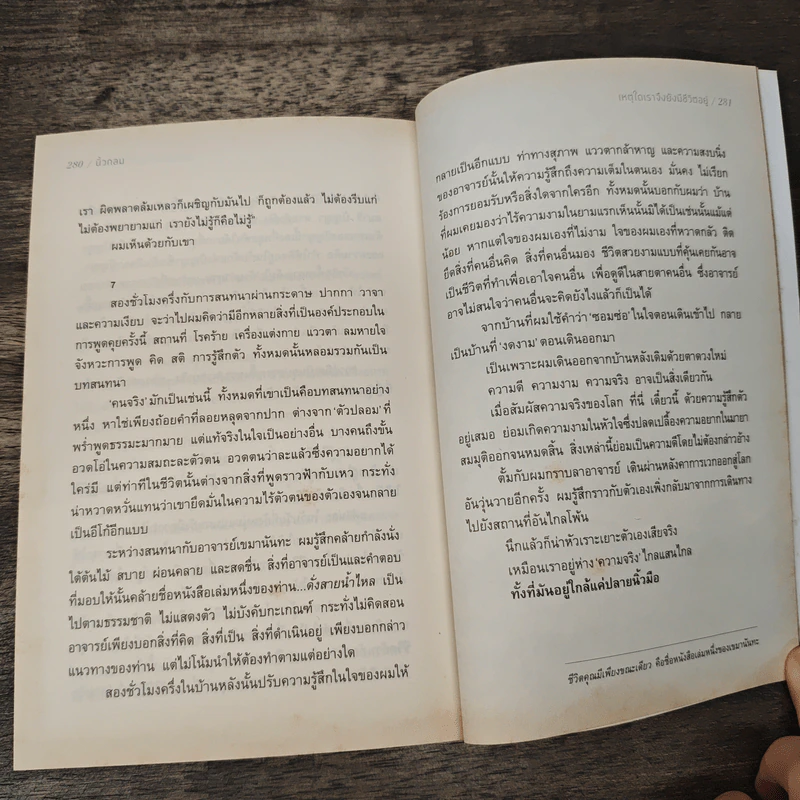 280 / นิ้วกลม
เรา ผิดพลาดล้มเหลวก็เผชิญกับมันไป ก็ถูกต้องแล้ว ไม่ต้องรีบแก่
ไม่ต้องพยายามแก่ เรายังไม่รู้ก็คือไม่รู้"
ผมเห็นด้วยกับเขา
7
สองชั่วโมงครึ่งกับการสนทนาผ่านกระดาษ ปากกา วาจา
และความเงียบ จะว่าไปผมคิดว่ามีอีกหลายสิ่งที่เป็นองค์ประกอบใน
การพูดคุยครั้งนี้ สถานที่ โรคร้าย เครื่องแต่งกาย แววตา ลมหายใจ
จังหวะการพูด คิด สติ การรู้สึกตัว ทั้งหมดนั้นหลอมรวมกันเป็น
บทสนทนา
'คนจริง' มักเป็นเช่นนี้ ทั้งหมดที่เขาเป็นคือบทสนทนาอย่าง
หนึ่ง หาใช่เพียงถ้อยคำที่ลอยหลุดจากปาก ต่างจาก 'ตัวปลอม' ที่
พร่ำพูดธรรมะมากมาย แต่แท้จริงในใจเป็นอย่างอื่น บางคนถึงขั้น
อวดโอ่ในความสมถะละตัวตน อวดตนว่าละแล้วซึ่งความอยากได้
ใคร่มี แต่ท่าทีในชีวิตนั้นต่างจากสิ่งที่พูดราวฟ้ากับเหว กระทั่ง
น่าหวาดหวั่นแทนว่าเขายึดมั่นในความไร้ตัวตนของตัวเองจนกลาย
เป็นอีโก้อีกแบบ
ระหว่างสนทนากับอาจารย์เขมานันทะ ผมรู้สึกคล้ายกำลังนั่ง
ใต้ต้นไม้ สบาย ผ่อนคลาย และสดชื่น สิ่งที่อาจารย์เป็นและคำตอบ
ที่มอบให้นั้นคล้ายชื่อหนังสือเล่มหนึ่งของท่าน...ดั่งสายน้ำไหล เป็น
ไปตามธรรมชาติ ไม่แสดงตัว ไม่บังคับกะเกณฑ์ กระทั่งไม่คิดสอน
อาจารย์เพียงบอกสิ่งที่คิด สิ่งที่เป็น สิ่งที่ดำเนินอยู่ เพียงบอกกล่าว
แนวทางของท่าน แต่ไม่โน้มนำให้ต้องทำตามแต่อย่างใด
สองชั่วโมงครึ่งในบ้านหลังนั้นปรับความรู้สึกในใจของผมให้
เหตุใดเราจึงยังมีชีวิตอยู่ / 281
กลายเป็นอีกแบบ ท่าทางสุภาพ แววตากล้าหาญ และความสงบนิ่ง
ของอาจารย์นั้นให้ความรู้สึกถึงความเต็มในตนเอง มั่นคง ไม่เรียก
ร้องการยอมรับหรือสิ่งใดจากใครอีก ทั้งหมดนั้นบอกกับผมว่า บ้าน
ที่ผมเคยมองว่าไร้ความงามในยามแรกเห็นนั้นมิได้เป็นเช่นนั้นแม้แต่
น้อย หากแต่ใจของผมเองที่ไม่งาม ใจของผมเองที่หวาดกลัว ติด
ยึดสิ่งที่คนอื่นคิด สิ่งที่คนอื่นมอง ชีวิตสวยงามแบบที่คุ้นเคยกันอาจ
เป็นชีวิตที่ทำเพื่อเอาใจคนอื่น เพื่อดูดีในสายตาคนอื่น ซึ่งอาจารย์
อาจไม่สนใจว่าคนอื่นจะคิดยังไงแล้วก็เป็นได้
จากบ้านที่ผมใช้คำว่า 'ซอมซ่อ' ในใจตอนเดินเข้าไป กลาย
เป็นบ้านที่ 'งดงาม' ตอนเดินออกมา
เป็นเพราะผมเดินออกจากบ้านหลังเดิมด้วยตาดวงใหม่
ความดี ความงาม ความจริง อาจเป็นสิ่งเดียวกัน
เมื่อสัมผัสความจริงของโลก ที่นี่ เดี๋ยวนี้ ด้วยความรู้สึกตัว
อยู่เสมอ ย่อมเกิดความงามในหัวใจซึ่งปลดเปลื้องความอยากในมายา
สมมุติออกจนหมดสิ้น สิ่งเหล่านี้ย่อมเป็นความดีโดยไม่ต้องกล่าวอ้าง
ตั้มกับผมกราบลาอาจารย์ เดินผ่านหลังคาการเวกออกสู่โลก
อันวุ่นวายอีกครั้ง ผมรู้สึกราวกับตัวเองเพิ่งกลับมาจากการเดินทาง
ไปยังสถานที่อันไกลโพ้น
นึกแล้วก็น่าหัวเราะเยาะตัวเองเสียจริง
เหมือนเราอยู่ห่าง 'ความจริง' ไกลแสนไกล
ทั้งที่มันอยู่ใกล้แค่ปลายนิ้วมือ
ชีวิตคุณมีเพียงขณะเดียว คือชื่อหนังสือเล่มหนึ่งของเขมานันทะ